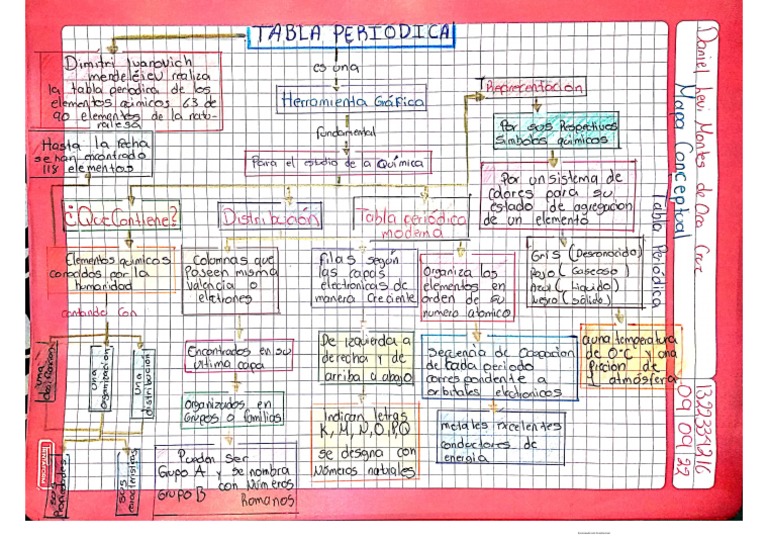 TABLA PERIODICA
Dimitri Ivanovich
mendeléiev realiza
la tabla periodica de los
elementos quimicos 63 de
90 elementos de la natu-
ralesa
Hasta la fecha
se han encontrado
118 elementos
es una
Herramienta Gráfica
fundamental
Para el estudio de a Química
Representacion
Por sus Respectivos
Simbolos quimicos
Por un sistema de
colores para su
estado de agregacion
de un elemento
Gris (Desconocido)
Rojo (Gaseoso)
Azul (Liquido)
Negro (sólido)
a una temperatura
de 0°C y una
precion de
1 atmósfera
¿Que Contiene?
Elementos quimicos
conocidos por la
humanidad
contando con
una
una
organización
una
distribución
sus
Propiedades
sus
caracteristicas
Distribución
Columnas que
Poseen misma
valencia o
eletrones
Encontrados en su
ultima capa
Organizados en
Grupos o familias
Pueden ser
Grupo A y se nombra
Grupo B con Números
Romanos
filas según
las capas
electronicas de
manera creciente
De izquierda a
derecha y de
arriba a abajo
Indican letras
K, M, N, O, P, Q
se designa con
Números naturales
Tabla periódica
moderna
Organiza los
elementos en
orden de su
numero atomico
Secuencia de Ocupacion
de cada periodo
correspondente a
orbitales electronicos
metales excelentes
conductores de
energia
Daniel Levi Montes de Oca Cruz
Mapa Conceptual
Tabla Periódica
1322334216
09 09 22